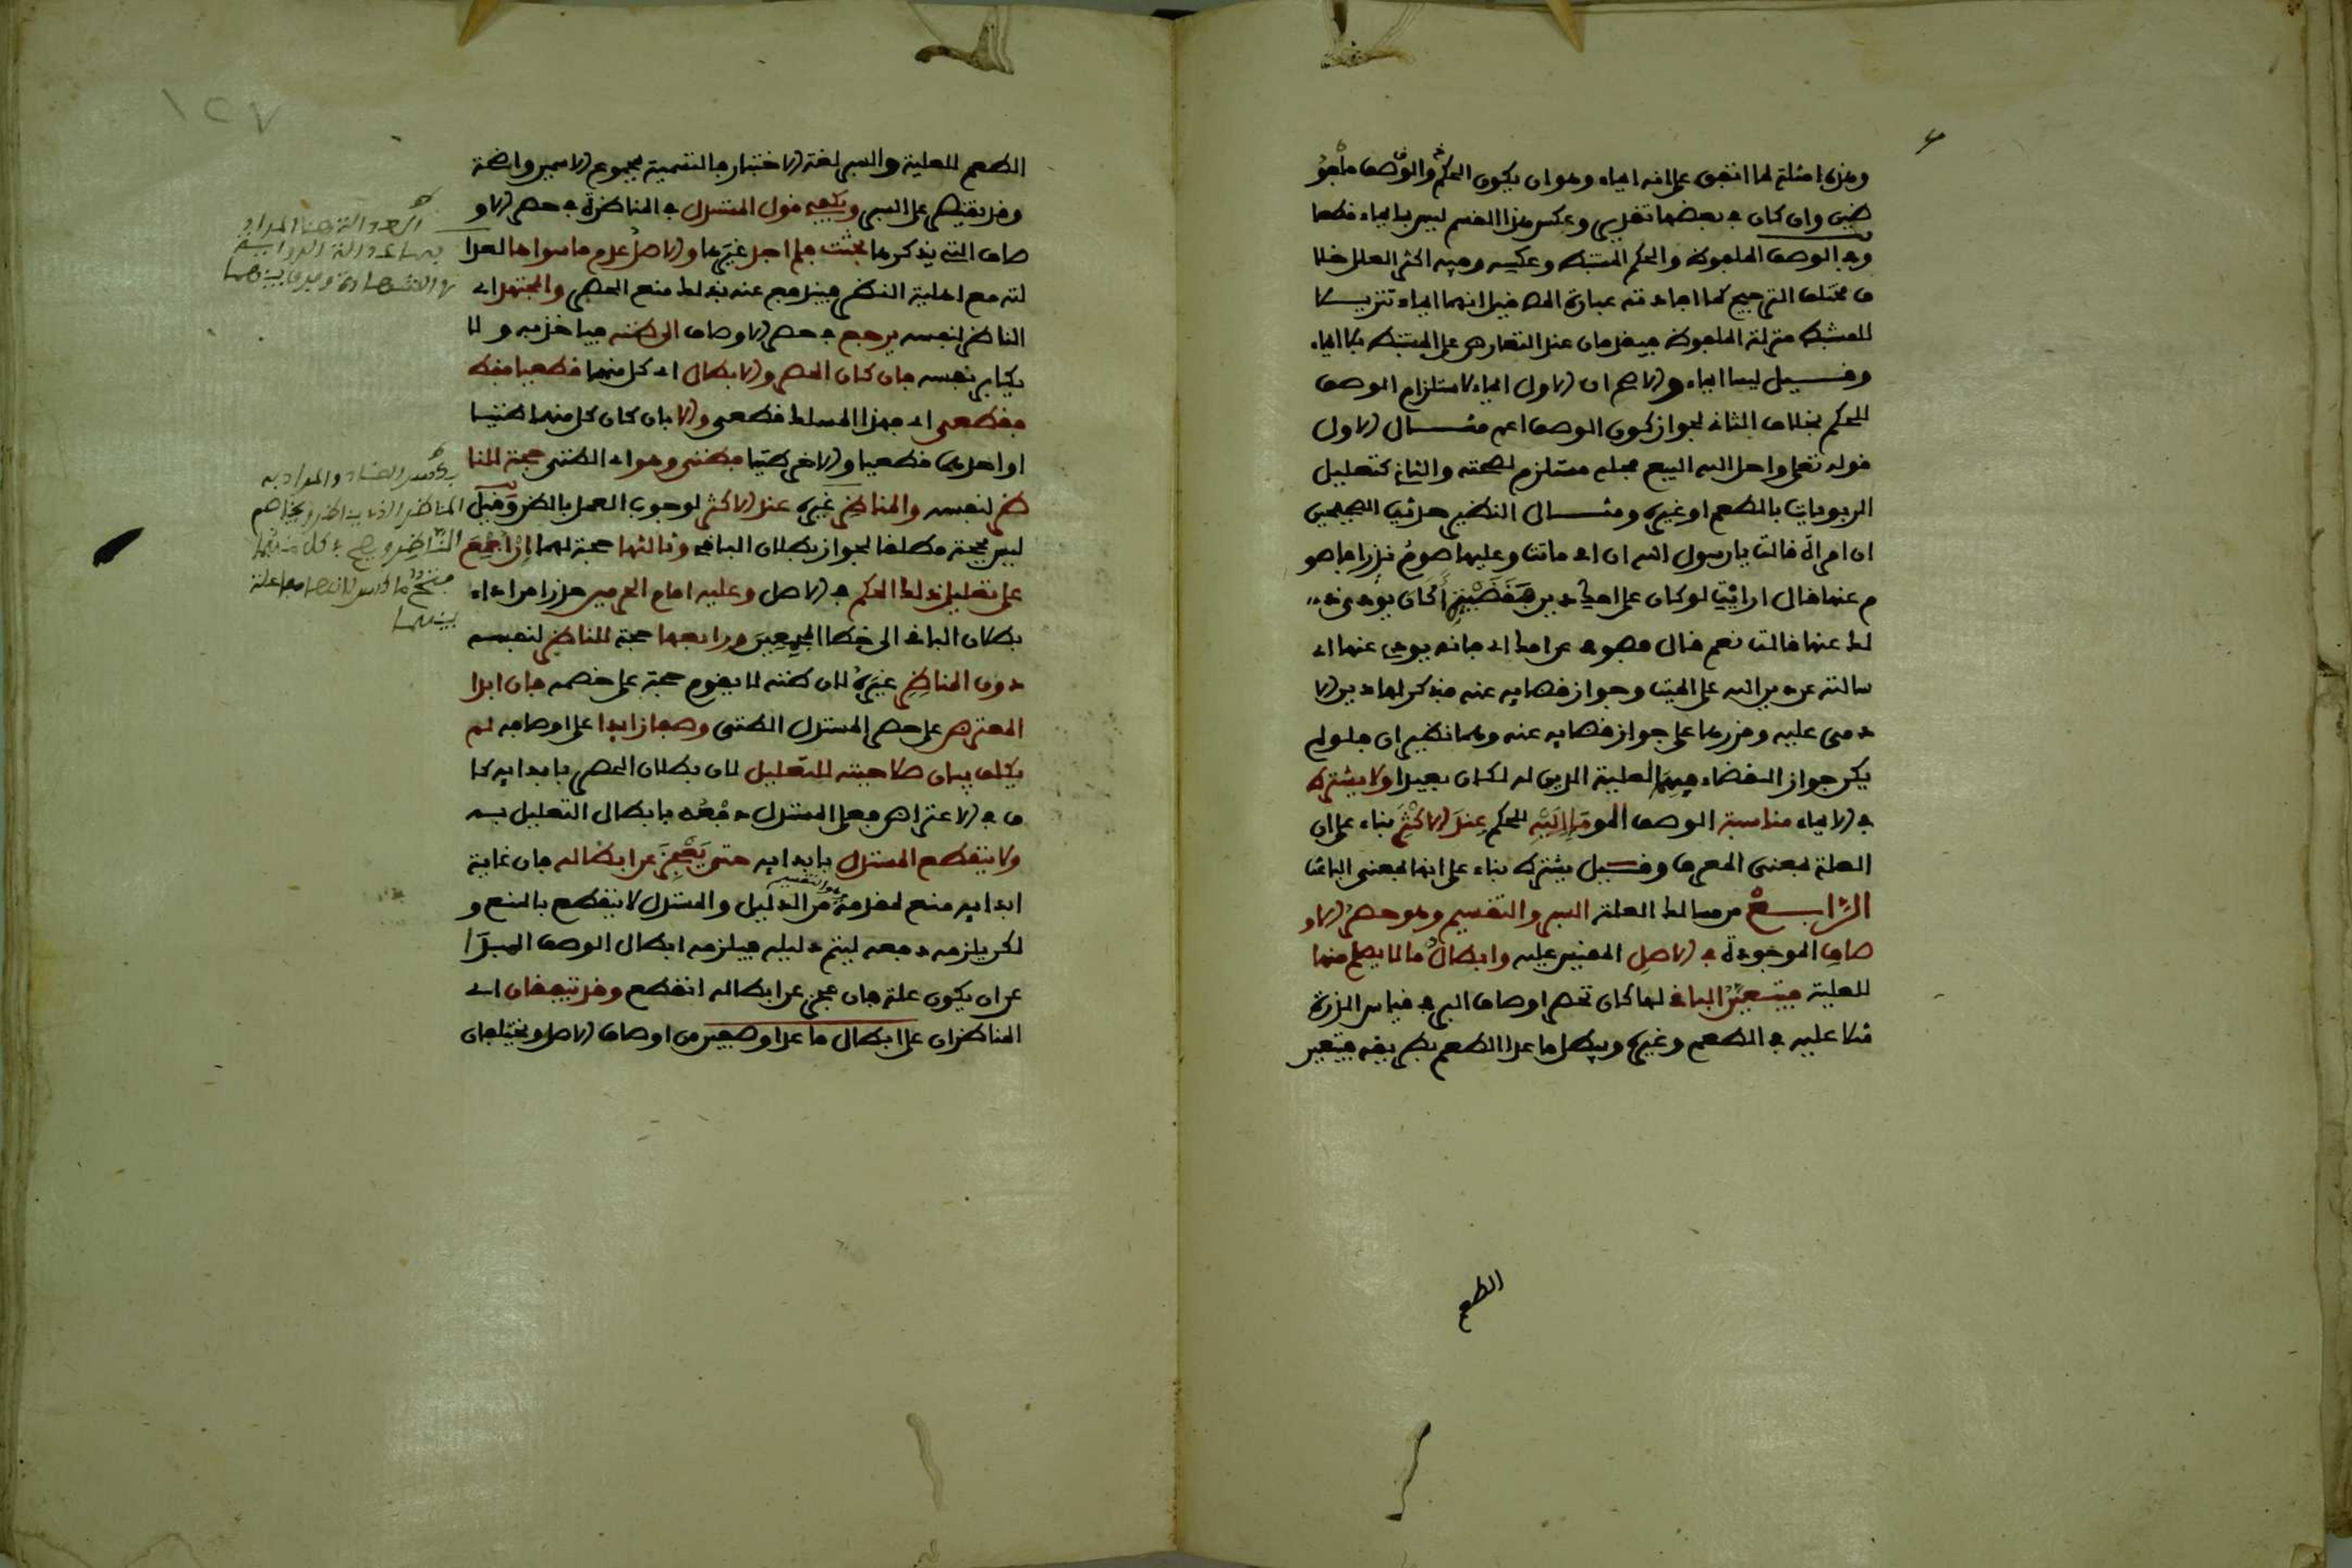 وهذه امثلة لما اتفق على انه ايماء وهو ان يكون الحكم والوصف ملفو
ظين وان كان في بعضها تقدير وعكس هذا القسم ليس بايماء قطعا
وفي الوصف الملفوظ والحكم المستنبط وعكسه وفيه اكثر العلل خلا
ف مختلف الترجيح كما افادته عبارة المص فقيل انهما ايماء تنزيلا
للمستنبط منزلة الملفوظ فيقدمان عند التعارض على المستنبط بلا ايماء
وقيل ليسا ايماء والاصح ان الاول ايماء لاستلزام الوصف
للحكم بخلاف الثاني لجواز كون الوصف اعم مثال الاول
قوله تعلى واحل الله البيع فحله مستلزم لصحته والثاني كتعليل
الربويات بالطعم او غيره ومثال النظير حديث الصحيحين
ان امراة قالت يا رسول الله ان امي ماتت وعليها صوم نذر افاصو
م عنها فقال ارايت لو كان على امك دين فقضيته أكان يودي ذ
لك عنها قالت نعم قال فصومي عن امك اي فانه يودي عنها اي
سالته عن دين الله على الميت وجواز قضايه عنه فذكر لها دين الا
دمي عليه وقررها على جواز قضايه عنه وهما نظيران فلو لم
يكن جواز القضاء فيهما لعلية الدين له لكان بعيدا ولا يشترط
في الايماء مناسبة الوصف المومإ إليه للحكم عند الاكثر بناء على ان
العلة بمعنى المعرف وقيل يشترط بناء على انها بمعنى الباعث
الرابع من مسالك العلة السبر والتقسيم وهو حصر الاو
صاف الموجودة في الاصل المقيس عليه وابطال ما لا يصلح منها
للعلية فيتعين الباقي لها كان تحصر اوصاف البر في قياس الذرة
مثلا عليه في الطعم وغيره ويبطل ما عدا الطعم بطريقه فيتعين
الطعم
١٢٧
الطعم للعلية والسبر لغة الاختبار فالتسمية بمجموع الاسمين واضحة
وقد يقتصر على السبر ويكفي قول المستدل في المناظرة في حصر الاو
صاف التي يذكرها بحثت فلم اجد غيرها والاصل عدم ما سواها لعدا
لته مع اهلية النظر فيندفع عنه بذلك منع الحصر والمجتهد اي
الناظر لنفسه يرجع في حصر الاوصاف الى ظنه فياخذ به ولا
يكابر نفسه فان كان الحصر والابطال اي كل منهما قطعيا فقط
فقطعي اي فهذا المسلك قطعي والا بان كان كل منهما ظنيا
او احدهما قطعيا والاخر ظنيا فظني وهو اي الظني حجة للنا
ظر لنفسه والمناظر غيره عند الاكثر لوجوب العمل بالظن وقيل
ليس بحجة مطلقا لجواز بطلان الباقي وثالثها حجة لهما إن أجمع
على تعليل ذلك الحكم في الاصل وعليه امام الحرمين حذرا من اداء
بطلان الباقي الى خطا المجمعين ورابعها حجة للناظر لنفسه
دون المناظر غيره لان ظنه لا يقوم حجة على خصمه فان ابدا
المعترض على حصر المستدل الظني وصفا زايدا على اوصافه لم
يكلف بيان صلاحيته للتعليل لان بطلان الحصر بابدايه كا
ف في الاعتراض فعلى المستدل دفعه بابطال التعليل به
ولا ينقطع المستدل بابدايه حتى يعجز عن ابطاله فان غاية
ابدايه منع لمقدمة من الدليل والمستدل لا ينقطع بالمنع و
لكن يلزمه دفعه ليتم دليله فيلزمه ابطال الوصف المبدا
عن ان يكون علة فان عجز عن ابطاله انقطع وقد يتفقان اي
المتناظران على ابطال ما عدا وصفين من اوصاف الاصل ويختلفان